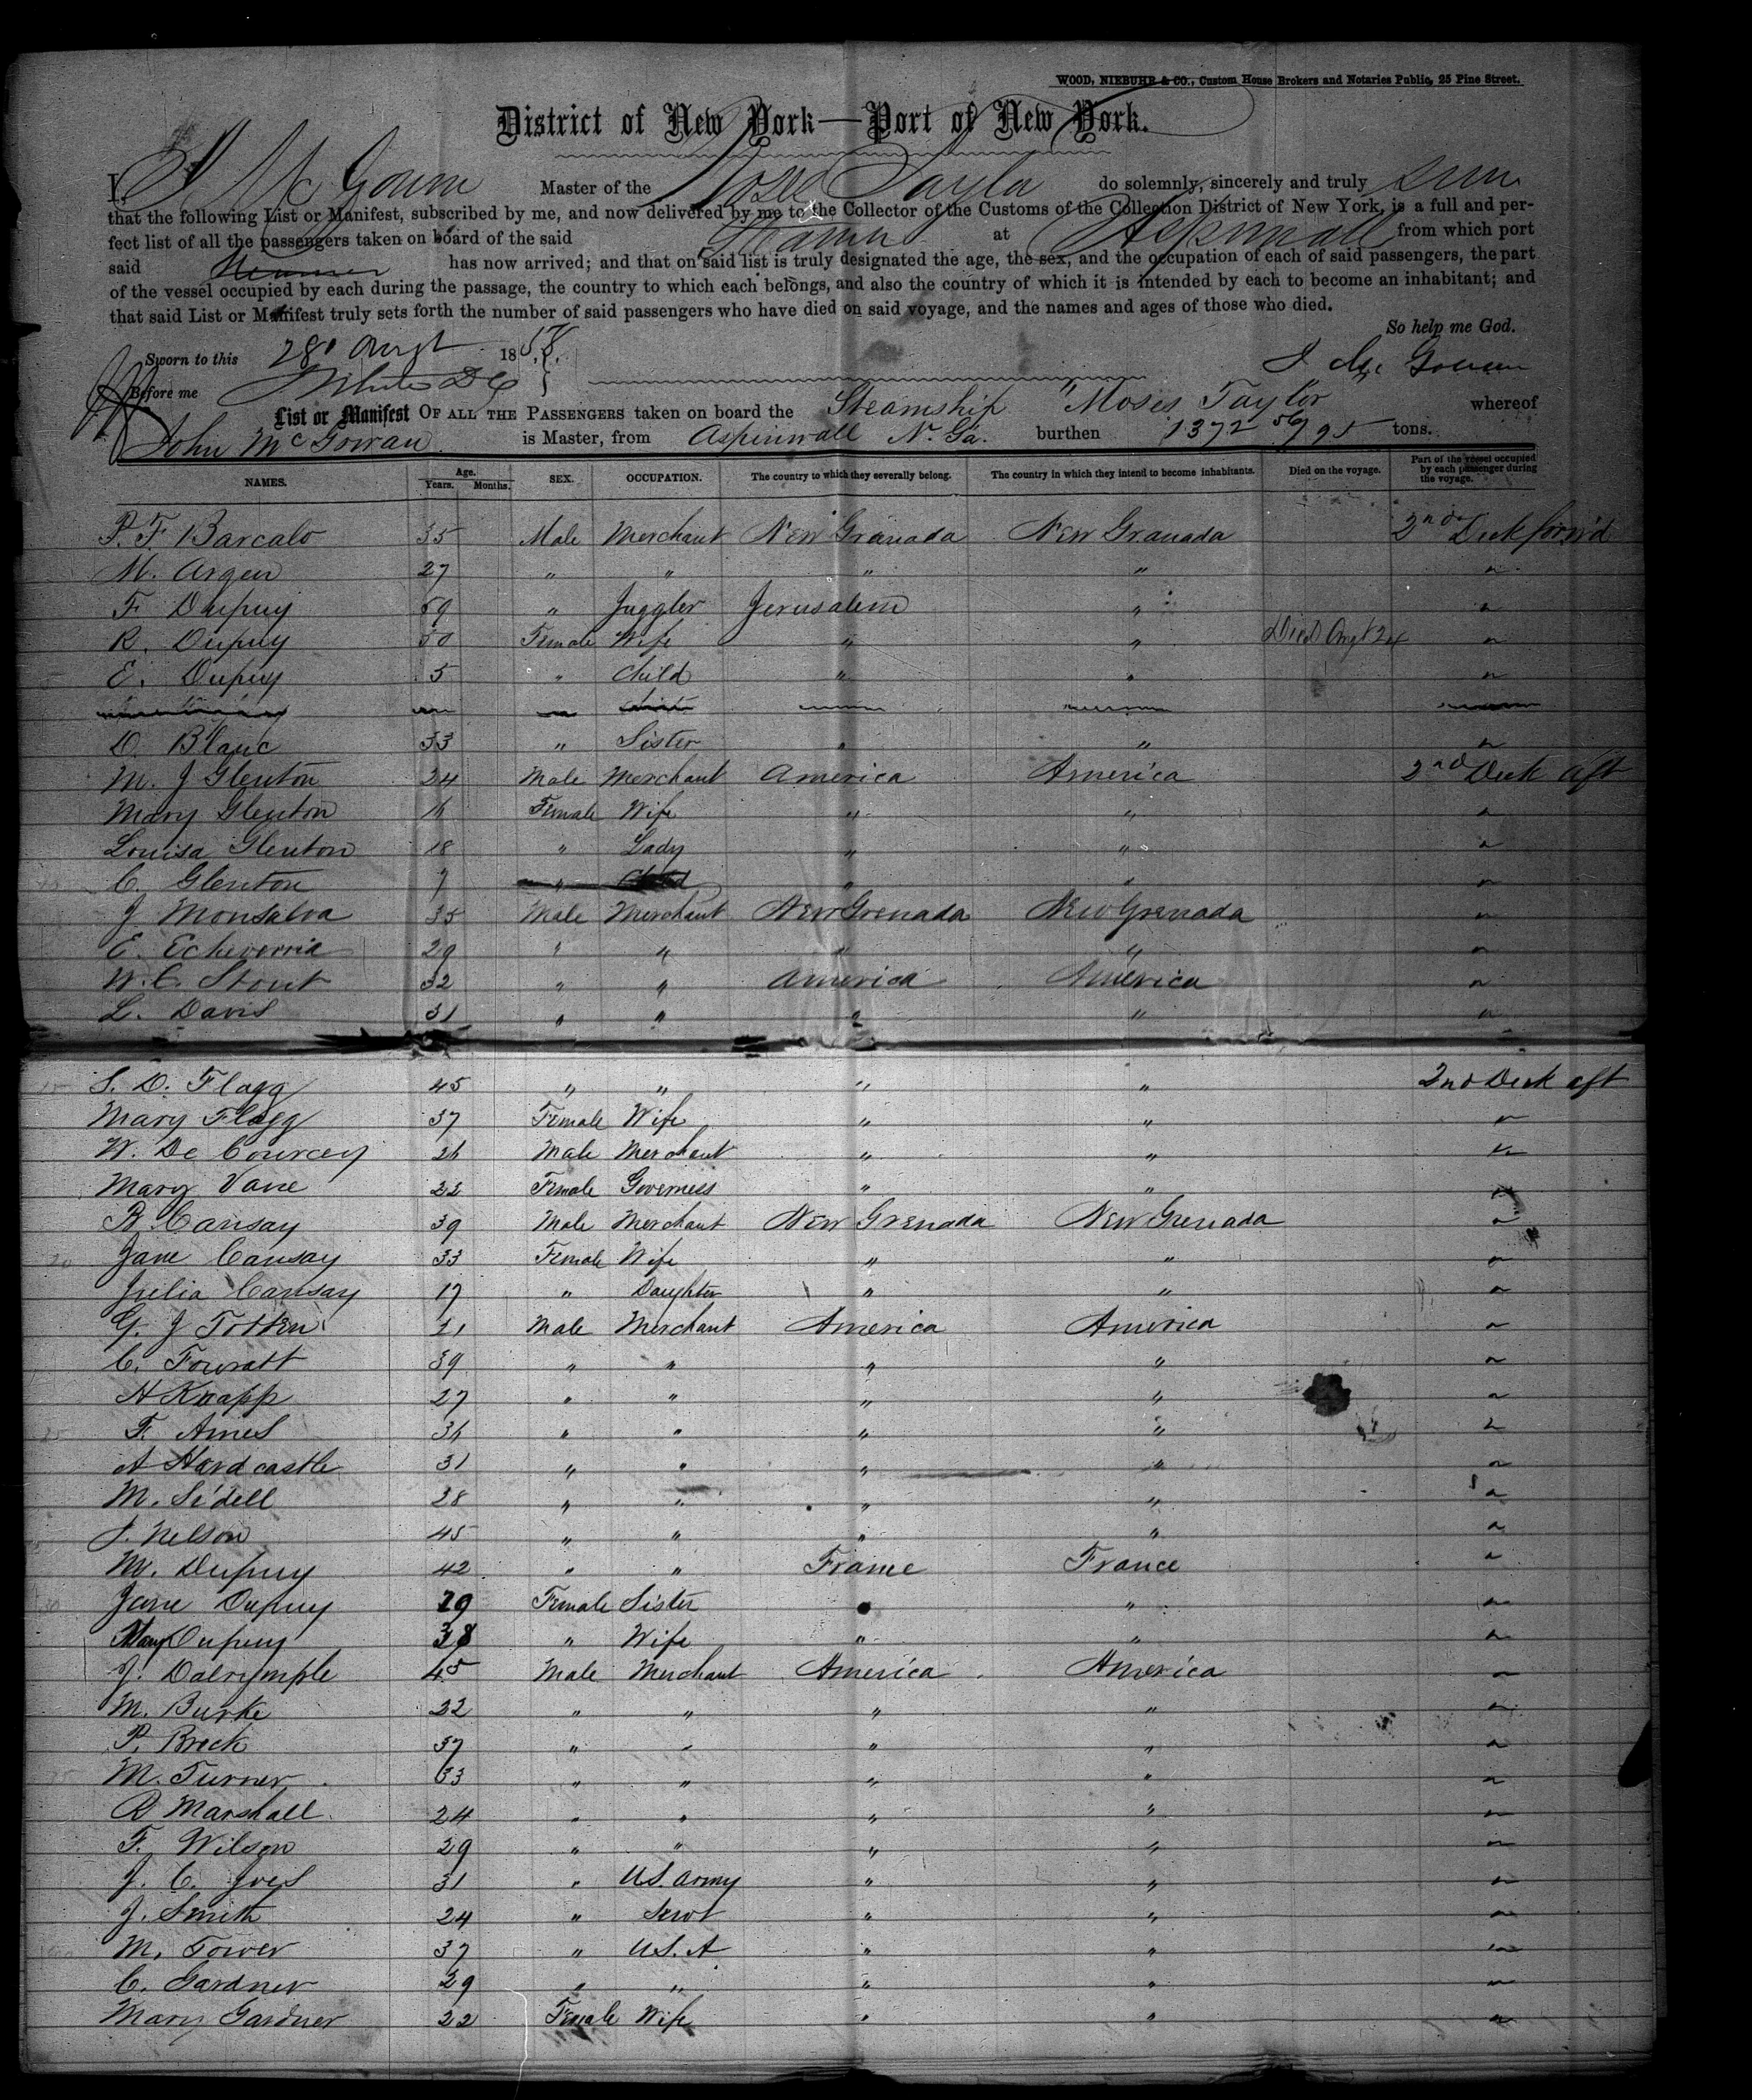 WOOD, NIEBUHR & CO., Custom House Brokers and Notaries Public, 25 Pine Street.
District of New York—Port of New York.
I, J McGowan Master of the Moses Taylor do solemnly, sincerely and truly swear
that the following List or Manifest, subscribed by me, and now delivered by me to the Collector of the Customs of the Collection District of New York, is a full and per-
fect list of all the passengers taken on board of the said Steamer at Aspinwall from which port
said Steamer has now arrived; and that on said list is truly designated the age, the sex, and the occupation of each of said passengers, the part
of the vessel occupied by each during the passage, the country to which each belongs, and also the country of which it is intended by each to become an inhabitant; and
that said List or Manifest truly sets forth the number of said passengers who have died on said voyage, and the names and ages of those who died.
So help me God.
Sworn to this 28 Augt 1858.
J McGowan
Before me
List or Manifest OF ALL THE PASSENGERS taken on board the Steamship "Moses Taylor whereof
John McGowan is Master, from Aspinwall N. Ga. burthen 1372 56/95 tons.
NAMES. Age. Years. Months. SEX. OCCUPATION. The country to which they severally belong. The country in which they intend to become inhabitants. Died on the voyage. Part of the vessel occupied by each passenger during the voyage.
P. F. Barcalo 35 Male Merchant New Granada New Granada 2nd Deck forw'd
M. Argen 27 " " " " "
F Dupuy 59 " Juggler Jerusalem " "
R. Dupuy 50 Female Wife " " Died Augt 24 "
E. Dupuy 5 " Child " " "
D. Blanc 33 " Sister " " "
M. J Glenton 24 Male Merchant America America 2nd Deck aft
Mary Glenton 16 Female Wife " " "
Louisa Glenton 18 " Lady " " "
C. Glenton 7 " Child " " "
J Monsalva 35 Male Merchant New Grenada New Grenada "
E. Echeverria 29 " " " " "
W. C. Stout 32 " " America America "
L. Davis 31 " " " " "
S. D. Flagg 45 " " " " 2nd Deck aft
Mary Flagg 37 Female Wife " " "
W. De Courcey 26 Male Merchant " " "
Mary Vane 22 Female Governess " " "
R. Cansay 39 Male Merchant New Grenada New Grenada "
20 Jane Cansay 33 Female Wife " " "
Julia Cansay 17 " Daughter " " "
G. J Totten 21 Male Merchant America America "
C. Fowratt 39 " " " " "
H Knapp 27 " " " " "
25 F. Ames 36 " " " " "
A Hardcastle 31 " " " " "
M. Sidell 28 " " " " "
J. Nelson 45 " " " " "
M. Dupuy 42 " " France France "
30 Jane Dupuy 29 Female Sister " " "
Mary Dupuy 38 " Wife " " "
J. Dalrymple 45 Male Merchant America America "
M. Burke 32 " " " " "
P. Breck 37 " " " " "
M. Turner 33 " " " " "
R Marshall 24 " " " " "
F. Wilson 29 " " " " "
J. C. Ives 31 " U.S. Army " " "
J. Smith 24 " Servt " " "
M. Tower 37 " U.S. A " " "
C. Gardner 39 " " " " "
Mary Gardner 22 Female Wife " " "